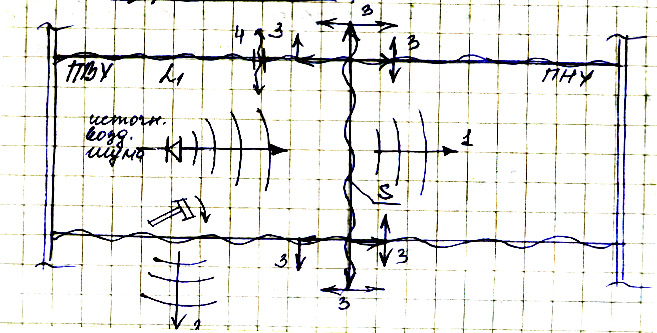 3
4 3 3
ПВУ L₁ ПНУ
источн.
возд.
шума
1
S
3 3
3
2